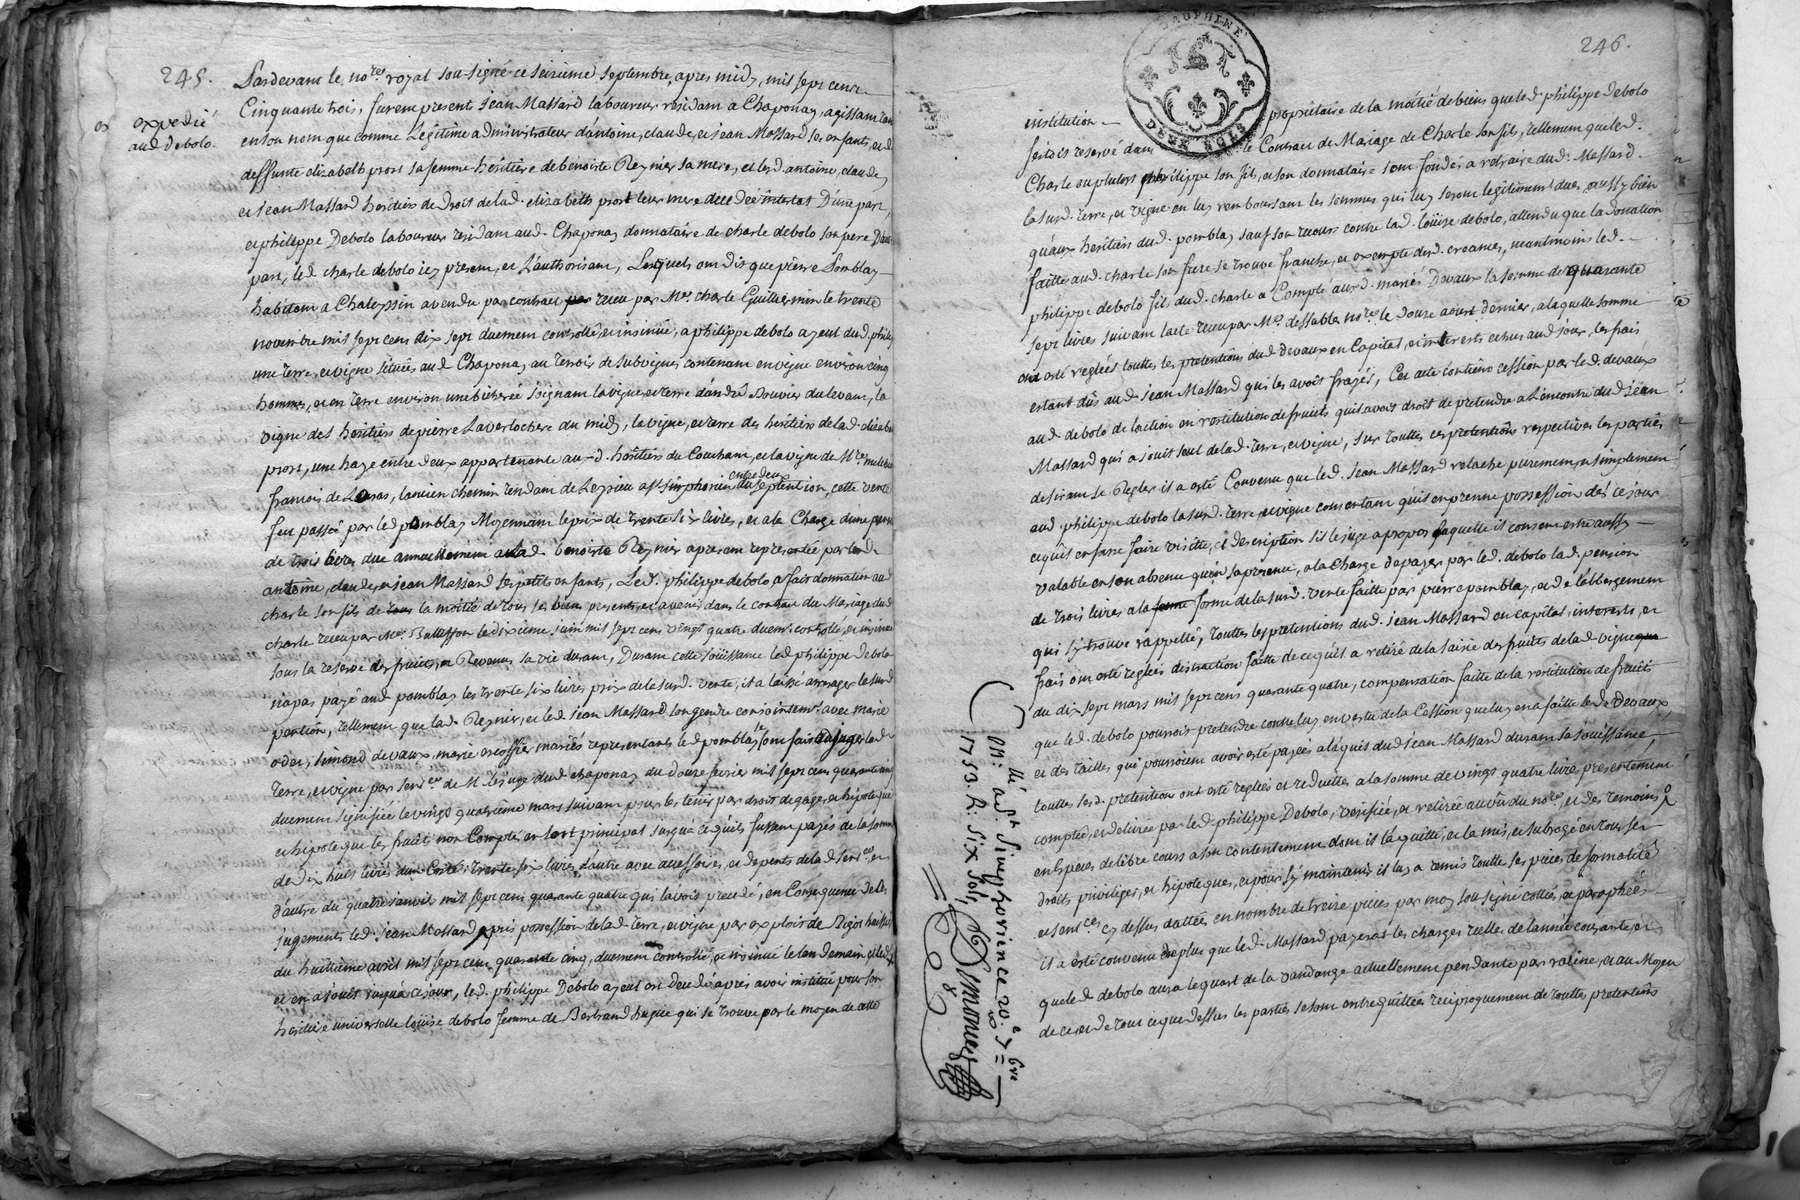 245.
expedié
aud debolo.
Pardevant le no.res royal sou-signé ce seizieme septembre, apres midy, mil sept cent
Cinquante trois, furent present Jean Massard laboureur residant a Chaponay, agissant tan
en son nom que comme Legitime administrateur d'antoine, claude, et jean Massard ses enfants, et de
deffunte elizabeth prost sa femme heritiere de benoiste Reynier sa mere, et led. antoine, claude,
et jean Massard heritiers de Droit de lad. elizabeth prost leur mere decedée intestat D'une part,
et philippe Debolo laboureur residant aud. Chaponay donnataire de charle debolo son pere D'autre
part, led. charle debolo icy present, et L'authorisant, Lesquels ont dit que pierre Pomblay
habitant a Chaleyssin a vendu par contract receu par Me. charle Guillermin le trente
novembre mil sept cens dix sept duement controllé, et insinué, a philippe debolo ayeul dud. philippe
une terre, et vigne situées aud. Chaponay au terroir de Subvignes contenant en vigne environ cinq
hommés, et en terre environ une bicherée joignant la vigne et terre d'andré Bouvier du levant, la
vigne des heritiers de pierre Laverlochere du midy, la vigne, et terre des heritiers de lad. elizabeth
prost, une haye entre deux appartenante auxd. heritiers du Couchant, et la vigne de Mre.
francois de Leuras, l'ancien chemin tendant de Leyrieu a St. simphorien entre deux du septention, cette vente
fut passée par led. pomblay Moyennant le prix de trente six livres, et a la Charge d'une pension
de trois livres due annuellement a lad. benoiste Reynier a present representée par lesd.
antoine, claude, et jean Massard ses petits enfants, Led. philippe debolo a fait donnation aud
charle son fils de la moitié de tous ses biens presents, et avenir dans le contrat du Mariage dud.
charle receu par Me. Balleffon le dixieme juin mil sept cens vingt quatre duemt. controllé, et insinué
sous la reserve des fruits, et Revenus sa vie durant, Durant cette jouissance led philippe debolo
n'a pas payé aud pomblay les trente six livres prix de la susd. vente, il a laissé arrerager la susd
pention, tellement que lad. Reynier, et led jean Massard son gendre conjointemt. avec marie
odet, simond devaux, marie mariés representants led pomblay se sont fait adjuger lad.
terre, et vigne par sence. de M. le juge dud. chaponay du douze fevrier mil sept cens quarante cinq
duement signifiée le vingt quatrieme mars suivant pour les tenir par droit de gage, et hipoteque
et hipoteque les fruits non Comptés en sort principal jusqu'a ce qu'ils fussent payés de la somme
de dix huit livres d'un Costé, trente six livres d'autre avec accessoires, et depents de lad. sence., et
d'autre du quatre janvier mil sept cens quarante quatre qui l'avoit precedé, en Consequence de ces
jugements led. jean Massard a pris possession de lad. terre, et vigne par exploit de Pigot huissier
du huitieme avril mil sept cens quarante cinq, duement controllé, et insinué le lendemain,
et en a jouit jusqu'a ce jour, led. philippe Debolo ayeul est decedé apres avoir institué pour son
heritiere universelle louise debolo femme de Bertrand hugue qui se trouve par le moyen de cette
246.
DAUPHINÉ
DEUX SOLS
institution propriétaire de la moitié de biens que led. philippe debolo
s'etoit reservé dans le Contrat de Mariage de Charle son fils, tellement que led.
Charle ou plutost philippe son fils, et son donnataire sont fondés a retraire dud. Massard
la susd. terre, et vigne en luy remboursant les sommes qui luy seront legitimemt. dues, aussy bien
qu'aux heritiers dud. pomblay sauf son recours contre lad. louise debolo, attendu que la donation
faitte aud. charle son frere se trouve franche, et exempte desd. creances, neantmoins led.
philippe debolo fils dud. charle a Compté auxd. mariés Devaux la somme de quarante
sept livres suivant l'acte receu par Me. dessables nore. le douze aoust dernier, a laquelle somme
ont esté reglées touttes les pretentions dud devaux en Capital, et interests echus aud jour, les frais
estant dûs aud. jean Massard qui les avoit frayés, Cet acte contient cession par led. devaux
aud. debolo de l'action en restitution de fruits qu'il avoit droit de pretendre a L'encontre dud. jean
Massard qui a jouit seul de lad. terre, et vigne, sur touttes ces pretentions respectives les parties
desirant se Regler il a esté Convenu que led. jean Massard relache purement, et simplement
aud. philippe debolo la susd. terre, et vigne consentant qu'il en prenne possession dés ce jour
et qu'il en fasse faire visitte, et description s'il le juge a propos laquelle il consent estre aussy
valable en son absence qu'en sa presence, a la charge de payer par led. debolo lad. pension
de trois livres a la forme de la susd. vente faitte par pierre pomblay, et de l'albergement
qui s'y trouve rappellé, touttes les pretentions dud. jean Massard en capital, interests, et
frais ont esté reglées distraction faitte de ce qu'il a retiré de la saisie des fruits de lad. vigne
du dix sept mars mil sept cens quarante quatre, compensation faitte de la restitution de fruits
que led. debolo pouvoit pretendre contre luy en vertu de la Cession que luy en a faitte led. Devaux,
et des tailles qui pourroient avoir esté payées a l'aquis dud jean Massard durant sa jouissance,
touttes lesd. pretention ont esté reglées et reduittes a la somme de vingt quatre livres presentement
comptée, et delivrée par led. philippe Debolo, verifiée, et retirée au vû du nore., et des temoins
en Especes de libre cours a son contentement dont il l'a quitté, et la mis, et subrogé en tous ses
droits privileges, et hipoteques, et pour s'y maintenir il luy a remis toutte les pieces de formalité
et sence. cy dessus dattée en nombre de treize pieces par moy sou-signé cottés, et paraphées
il a esté convenu de plus que led. Massard payerat les charges reelle de l'année courante, et
que led. debolo aura le quart de la vandange actuellement pendante par racine, et au Moyen
de ce, et de tout ce que dessus les parties se sont entrequittées reciproquement de touttes pretentions
1753. R: six sols
Simond